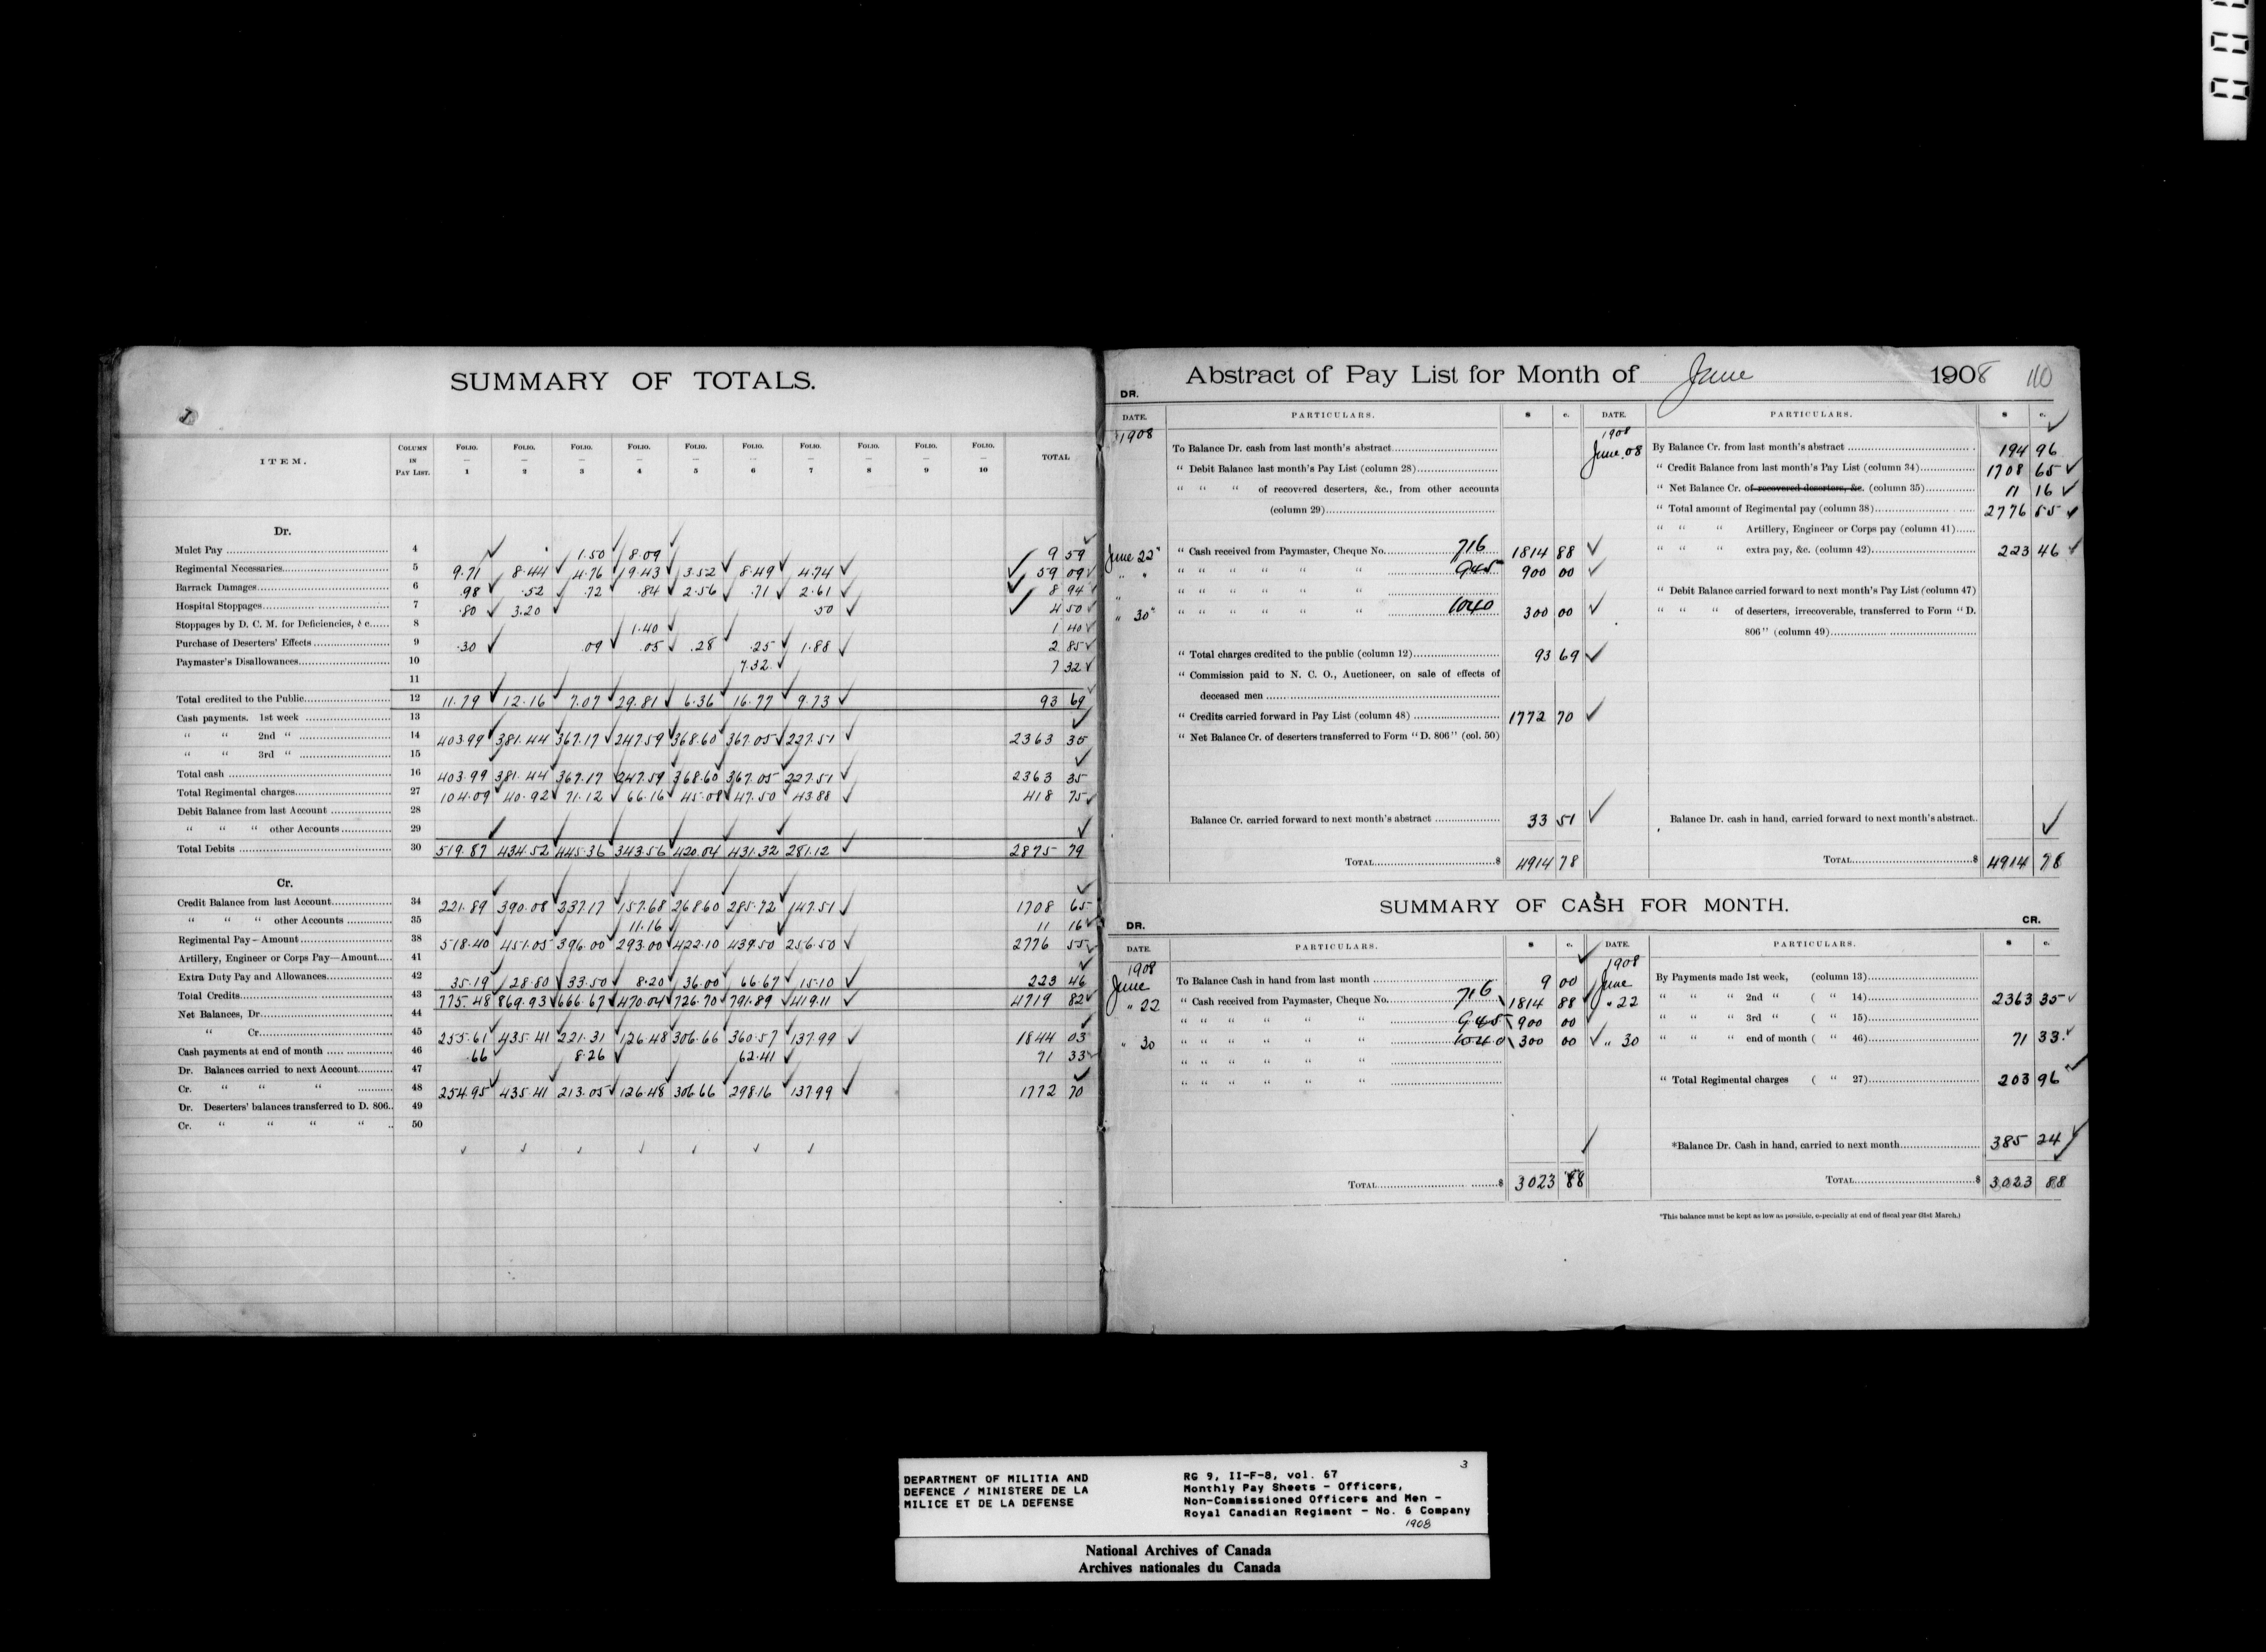 SUMMARY OF TOTALS.
ITEM. COLUMN IN PAY LIST. FOLIO. — 1 FOLIO. — 2 FOLIO. — 3 FOLIO. — 4 FOLIO. — 5 FOLIO. — 6 FOLIO. — 7 FOLIO. — 8 FOLIO. — 9 FOLIO. — 10 TOTAL
Dr.
Mulct Pay 4 1.50 8.09 9 59
Regimental Necessaries 5 9.71 8.44 4.76 19.43 3.52 8.49 4.74 59 09
Barrack Damages 6 .98 .52 .72 .84 2.56 .71 2.61 8 94
Hospital Stoppages 7 .80 3.20 .50 4 50
Stoppages by D. C. M. for Deficiencies, &c 8 1.40 1 40
Purchase of Deserters' Effects 9 .30 .09 .05 .28 .25 1.88 2 85
Paymaster's Disallowances 10 7.32 7 32
11
Total credited to the Public 12 11.79 12.16 7.07 29.81 6.36 16.77 9.73 93 69
Cash payments. 1st week 13
" " 2nd " 14 403.99 381.44 367.17 247.59 368.60 367.05 227.51 2363 35
" " 3rd " 15
Total cash 16 403.99 381.44 367.17 247.59 368.60 367.05 227.51 2363 35
Total Regimental charges 27 104.09 40.92 71.12 66.16 45.08 47.50 43.88 418 75
Debit Balance from last Account 28
" " " other Accounts 29
Total Debits 30 519.87 434.52 445.36 343.56 420.04 431.32 281.12 2875 79
Cr.
Credit Balance from last Account 34 221.89 390.08 237.17 157.68 268.60 285.72 147.51 1708 65
" " " other Accounts 35 11.16 11 16
Regimental Pay - Amount 38 518.40 451.05 396.00 293.00 422.10 439.50 256.50 2776 55
Artillery, Engineer or Corps Pay—Amount 41
Extra Duty Pay and Allowances 42 35.19 28.80 33.50 8.20 36.00 66.67 15.10 223 46
Total Credits 43 775.48 869.93 666.67 470.04 726.70 791.89 419.11 4719 82
Net Balances, Dr 44
" Cr 45 255.61 435.41 221.31 126.48 306.66 360.57 137.99 1844 03
Cash payments at end of month 46 .66 8.26 62.41 71 33
Dr. Balances carried to next Account 47
Cr. " " " 48 254.95 435.41 213.05 126.48 306.66 298.16 137.99 1772 70
Dr. Deserters' balances transferred to D. 806 49
Cr. " " " " 50
Abstract of Pay List for Month of June 1908 110
DR.
DATE. PARTICULARS. $ c. DATE. PARTICULARS. $ c.
1908 1908
To Balance Dr. cash from last month's abstract June 08 By Balance Cr. from last month's abstract 194 96
" Debit Balance last month's Pay List (column 28) " Credit Balance from last month's Pay List (column 34) 1708 65
" " " of recovered deserters, &c., from other accounts " Net Balance Cr. of recovered deserters, &c. (column 35) 11 16
(column 29) " Total amount of Regimental pay (column 38) 2776 55
" " " Artillery, Engineer or Corps pay (column 41)
June 22 " Cash received from Paymaster, Cheque No. 716 1814 88 " " " extra pay, &c. (column 42) 223 46
" " " " " " " " 945 900 00
" " " " " " " " Debit Balance carried forward to next month's Pay List (column 47)
" 30 " " " " " " 1040 300 00 " " " of deserters, irrecoverable, transferred to Form "D.
806" (column 49)
" Total charges credited to the public (column 12) 93 69
" Commission paid to N. C. O., Auctioneer, on sale of effects of
deceased men
" Credits carried forward in Pay List (column 48) 1772 70
" Net Balance Cr. of deserters transferred to Form "D. 806" (col. 50)
Balance Cr. carried forward to next month's abstract 33 51 Balance Dr. cash in hand, carried forward to next month's abstract
TOTAL $ 4914 78 TOTAL $ 4914 78
SUMMARY OF CASH FOR MONTH.
DR. CR.
DATE. PARTICULARS. $ c. DATE. PARTICULARS. $ c.
1908 1908
June To Balance Cash in hand from last month 9 00 June By Payments made 1st week, (column 13)
" 22 " Cash received from Paymaster, Cheque No. 716 1814 88 " 22 " " " 2nd " ( " 14) 2363 35
" " " " " " 945 900 00 " " " 3rd " ( " 15)
" 30 " " " " " " 1040 300 00 " 30 " " " end of month ( " 46) 71 33
" " " " " "
" " " " " " " Total Regimental charges ( " 27) 203 96
*Balance Dr. Cash in hand, carried to next month 385 24
TOTAL $ 3023 88 TOTAL $ 3023 88
*This balance must be kept as low as possible, especially at end of fiscal year (31st March.)
DEPARTMENT OF MILITIA AND
DEFENCE / MINISTERE DE LA
MILICE ET DE LA DEFENSE
3
RG 9, II-F-8, vol. 67
Monthly Pay Sheets - Officers,
Non-Commissioned Officers and Men -
Royal Canadian Regiment - No. 6 Company
1908
National Archives of Canada
Archives nationales du Canada